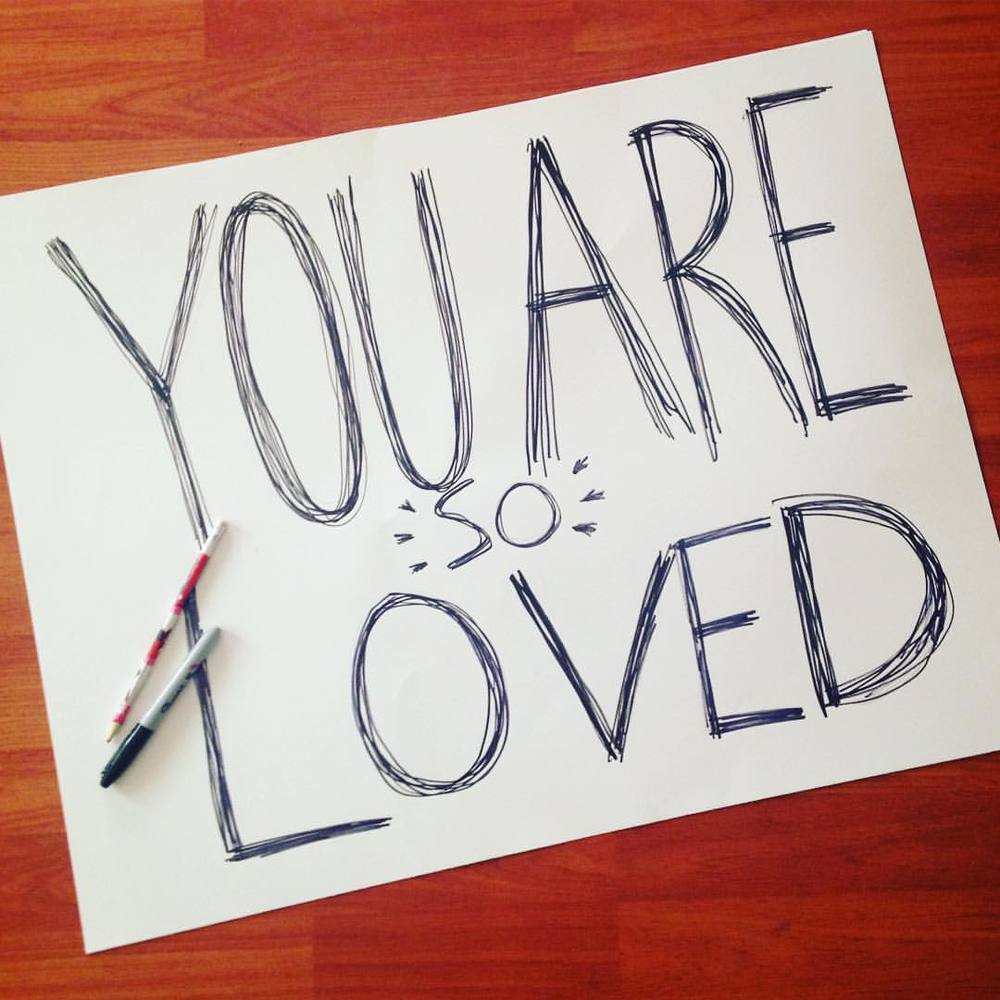 YOU ARE
SO
LOVED